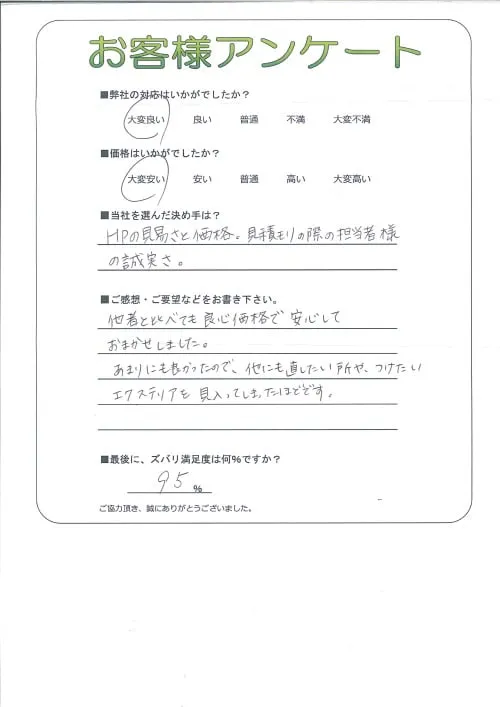 お客様アンケート
■弊社の対応はいかがでしたか？
大変良い 良い 普通 不満 大変不満
■価格はいかがでしたか？
大変安い 安い 普通 高い 大変高い
■当社を選んだ決め手は？
HPの見易さと価格。見積モリの際の担当者様
の誠実さ。
■ご感想・ご要望などをお書き下さい。
他者と比べても良心価格で安心して
おまかせしました。
あまりにも良かったので、他にも直したい所や、つけたい
エクステリアを見入ってしまったほどです。
■最後に、ズバリ満足度は何％ですか？
95％
ご協力頂き、誠にありがとうございました。